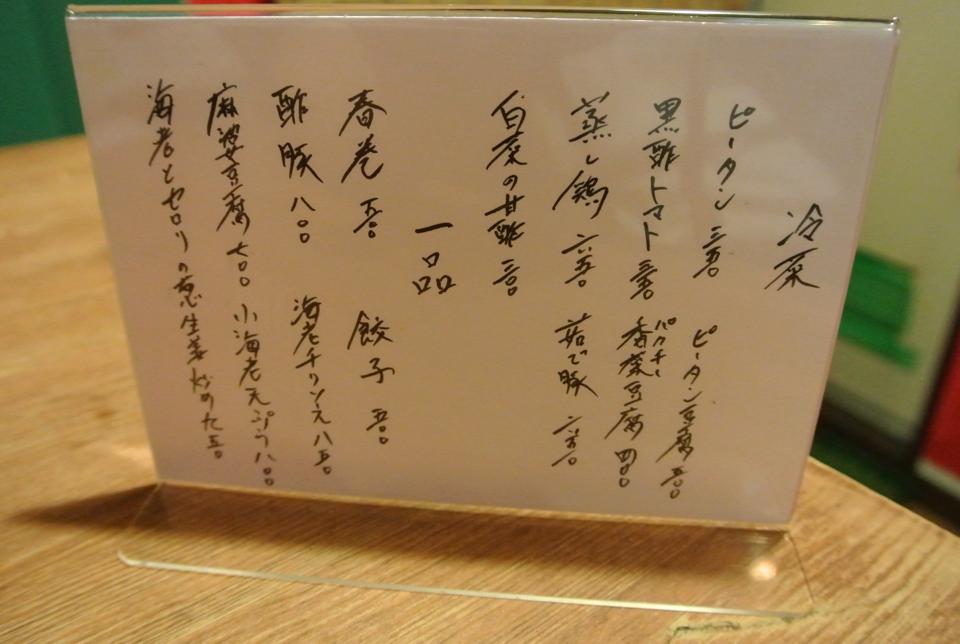 冷菜
ピータン 三五〇 ピータン豆腐 五〇〇
黒酢トマト 三五〇 香菜豆腐 四〇〇
パクチー
蒸し鶏 六五〇 茹で豚 六五〇
白菜の甘酢 三〇〇
一品
春巻 五〇〇 餃子 五〇〇
酢豚 八〇〇 海老チリソース 八五〇
麻婆豆腐 七〇〇 小海老天ぷら 八〇〇
海老とセロリの葱生姜炒め 九五〇